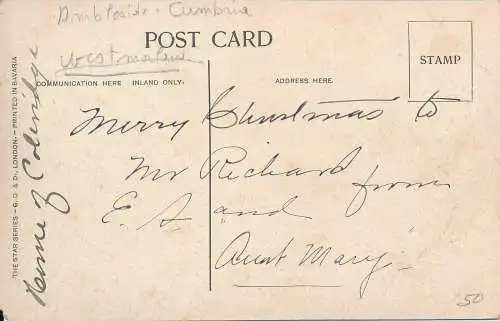 Ambleside. Cumbria
Westmorland
POST CARD
COMMUNICATION HERE INLAND ONLY.
ADDRESS HERE.
STAMP
Merry Christmas to
Mr Richard from
E. A and
Aunt Mary.
Home of Coleridge
THE STAR SERIES – G. D. & D., LONDON. – PRINTED IN BAVARIA
50